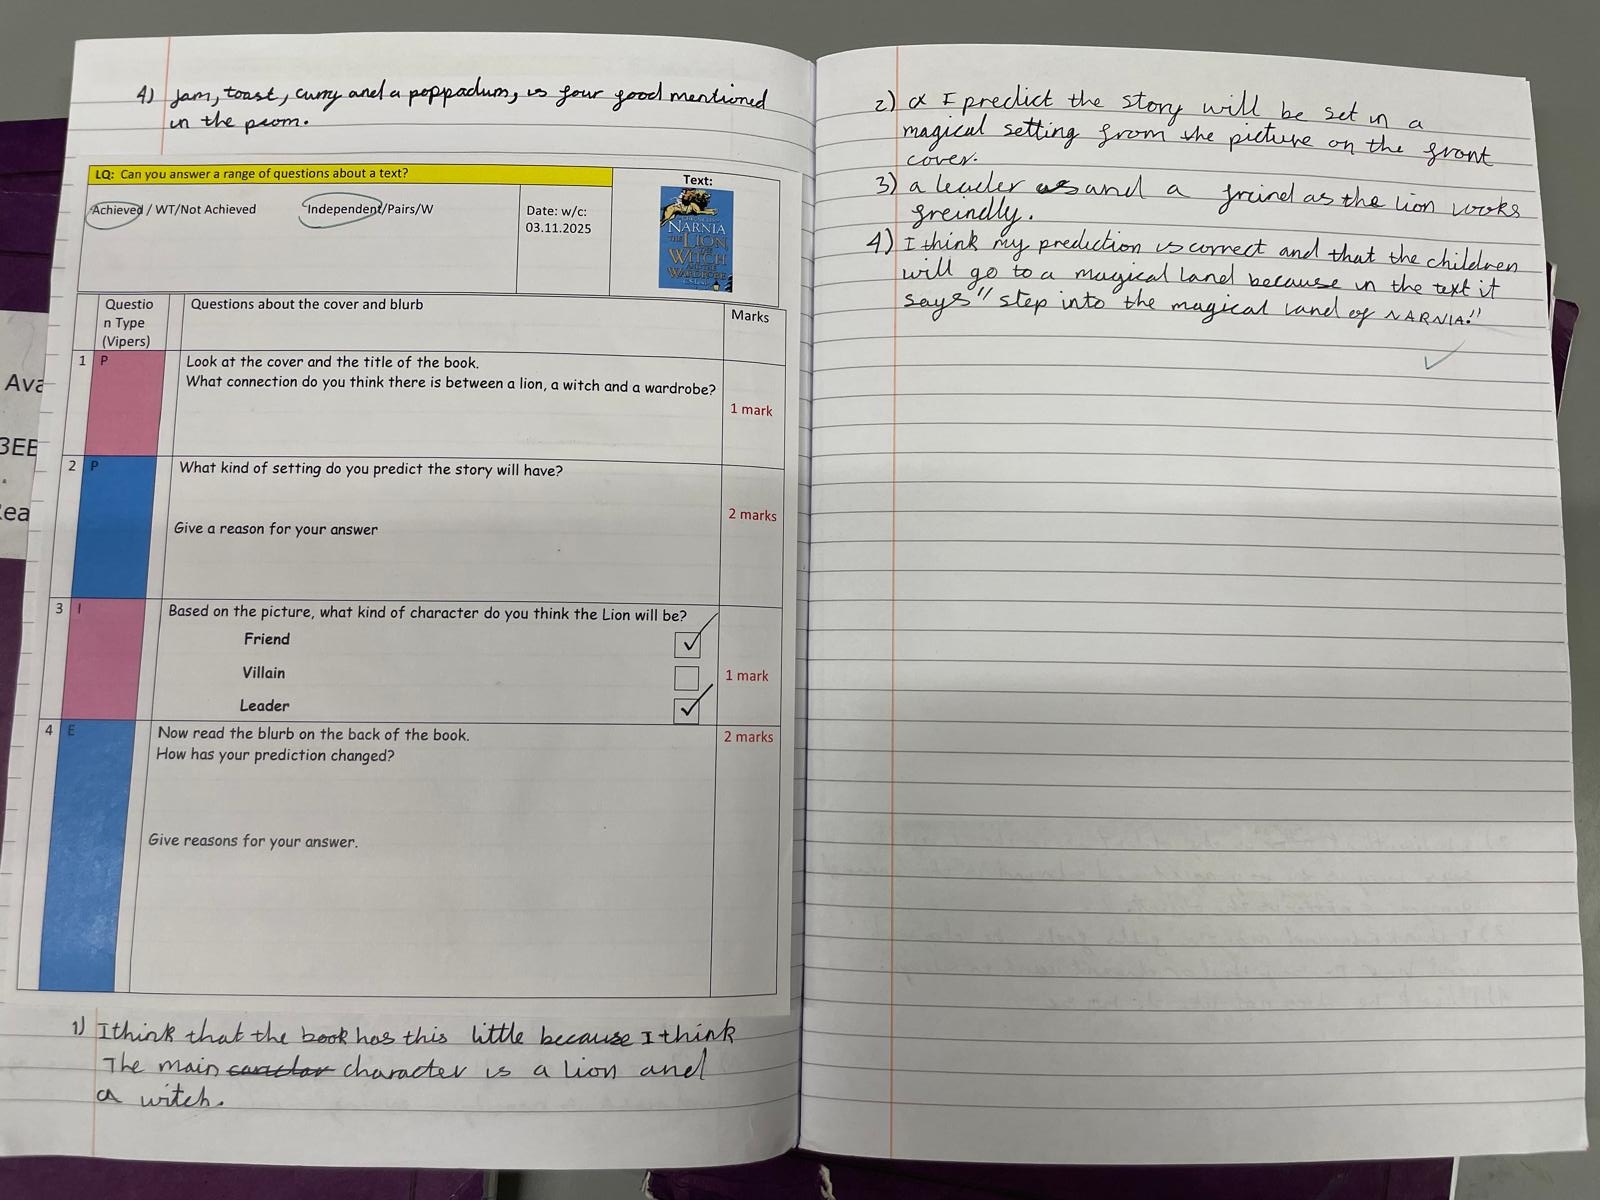 4) Jam, toast, curry and a poppadum, is four food mentioned
in the peom.
LQ: Can you answer a range of questions about a text?
Achieved / WT/Not Achieved
Independent/Pairs/W
Date: w/c:
03.11.2025
Text:
NARNIA
THE LION
THE
WITCH
AND THE
WARDROBE
Questio
n Type
(Vipers)
Questions about the cover and blurb
Marks
1 P
Look at the cover and the title of the book.
What connection do you think there is between a lion, a witch and a wardrobe?
1 mark
2 P
What kind of setting do you predict the story will have?
Give a reason for your answer
2 marks
3 I
Based on the picture, what kind of character do you think the Lion will be?
Friend
Villain
Leader
1 mark
4 E
Now read the blurb on the back of the book.
How has your prediction changed?
Give reasons for your answer.
2 marks
1) I think that the book has this little because I think
The main character is a lion and
a witch.
2) I predict the story will be set in a
magical setting from the picture on the front
cover.
3) a leader and a freind as the lion looks
freindly.
4) I think my prediction is correct and that the children
will go to a magical land because in the text it
says "step into the magical land of NARNIA!"
Ava
3EE
ea